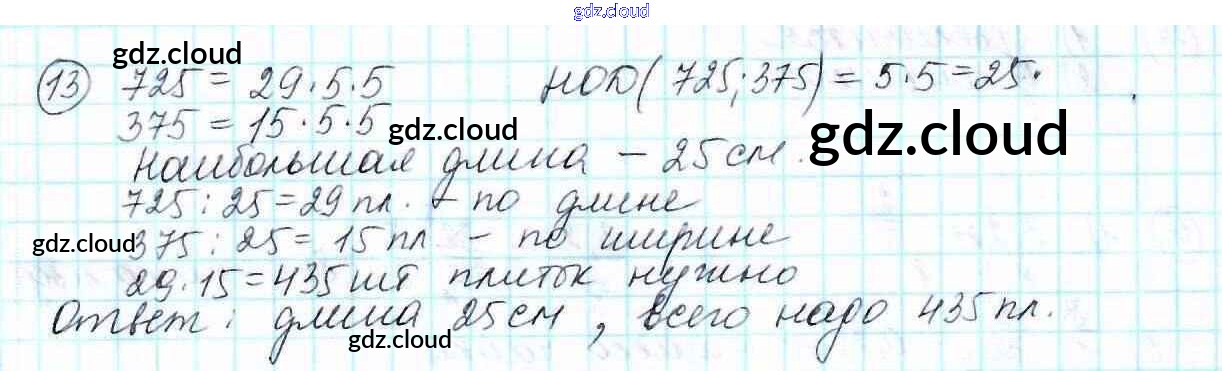 gdz.cloud
gdz.cloud
13 725 = 29·5·5 НОД(725;375) = 5·5=25.
375 = 15·5·5
gdz.cloud
gdz.cloud
Наибольшая длина – 25см.
725 : 25 = 29 пл. – по длине
gdz.cloud
375 : 25 = 15 пл – по ширине
29·15=435 шт плиток нужно
Ответ: длина 25см, всего надо 435 пл.
gdz.cloud